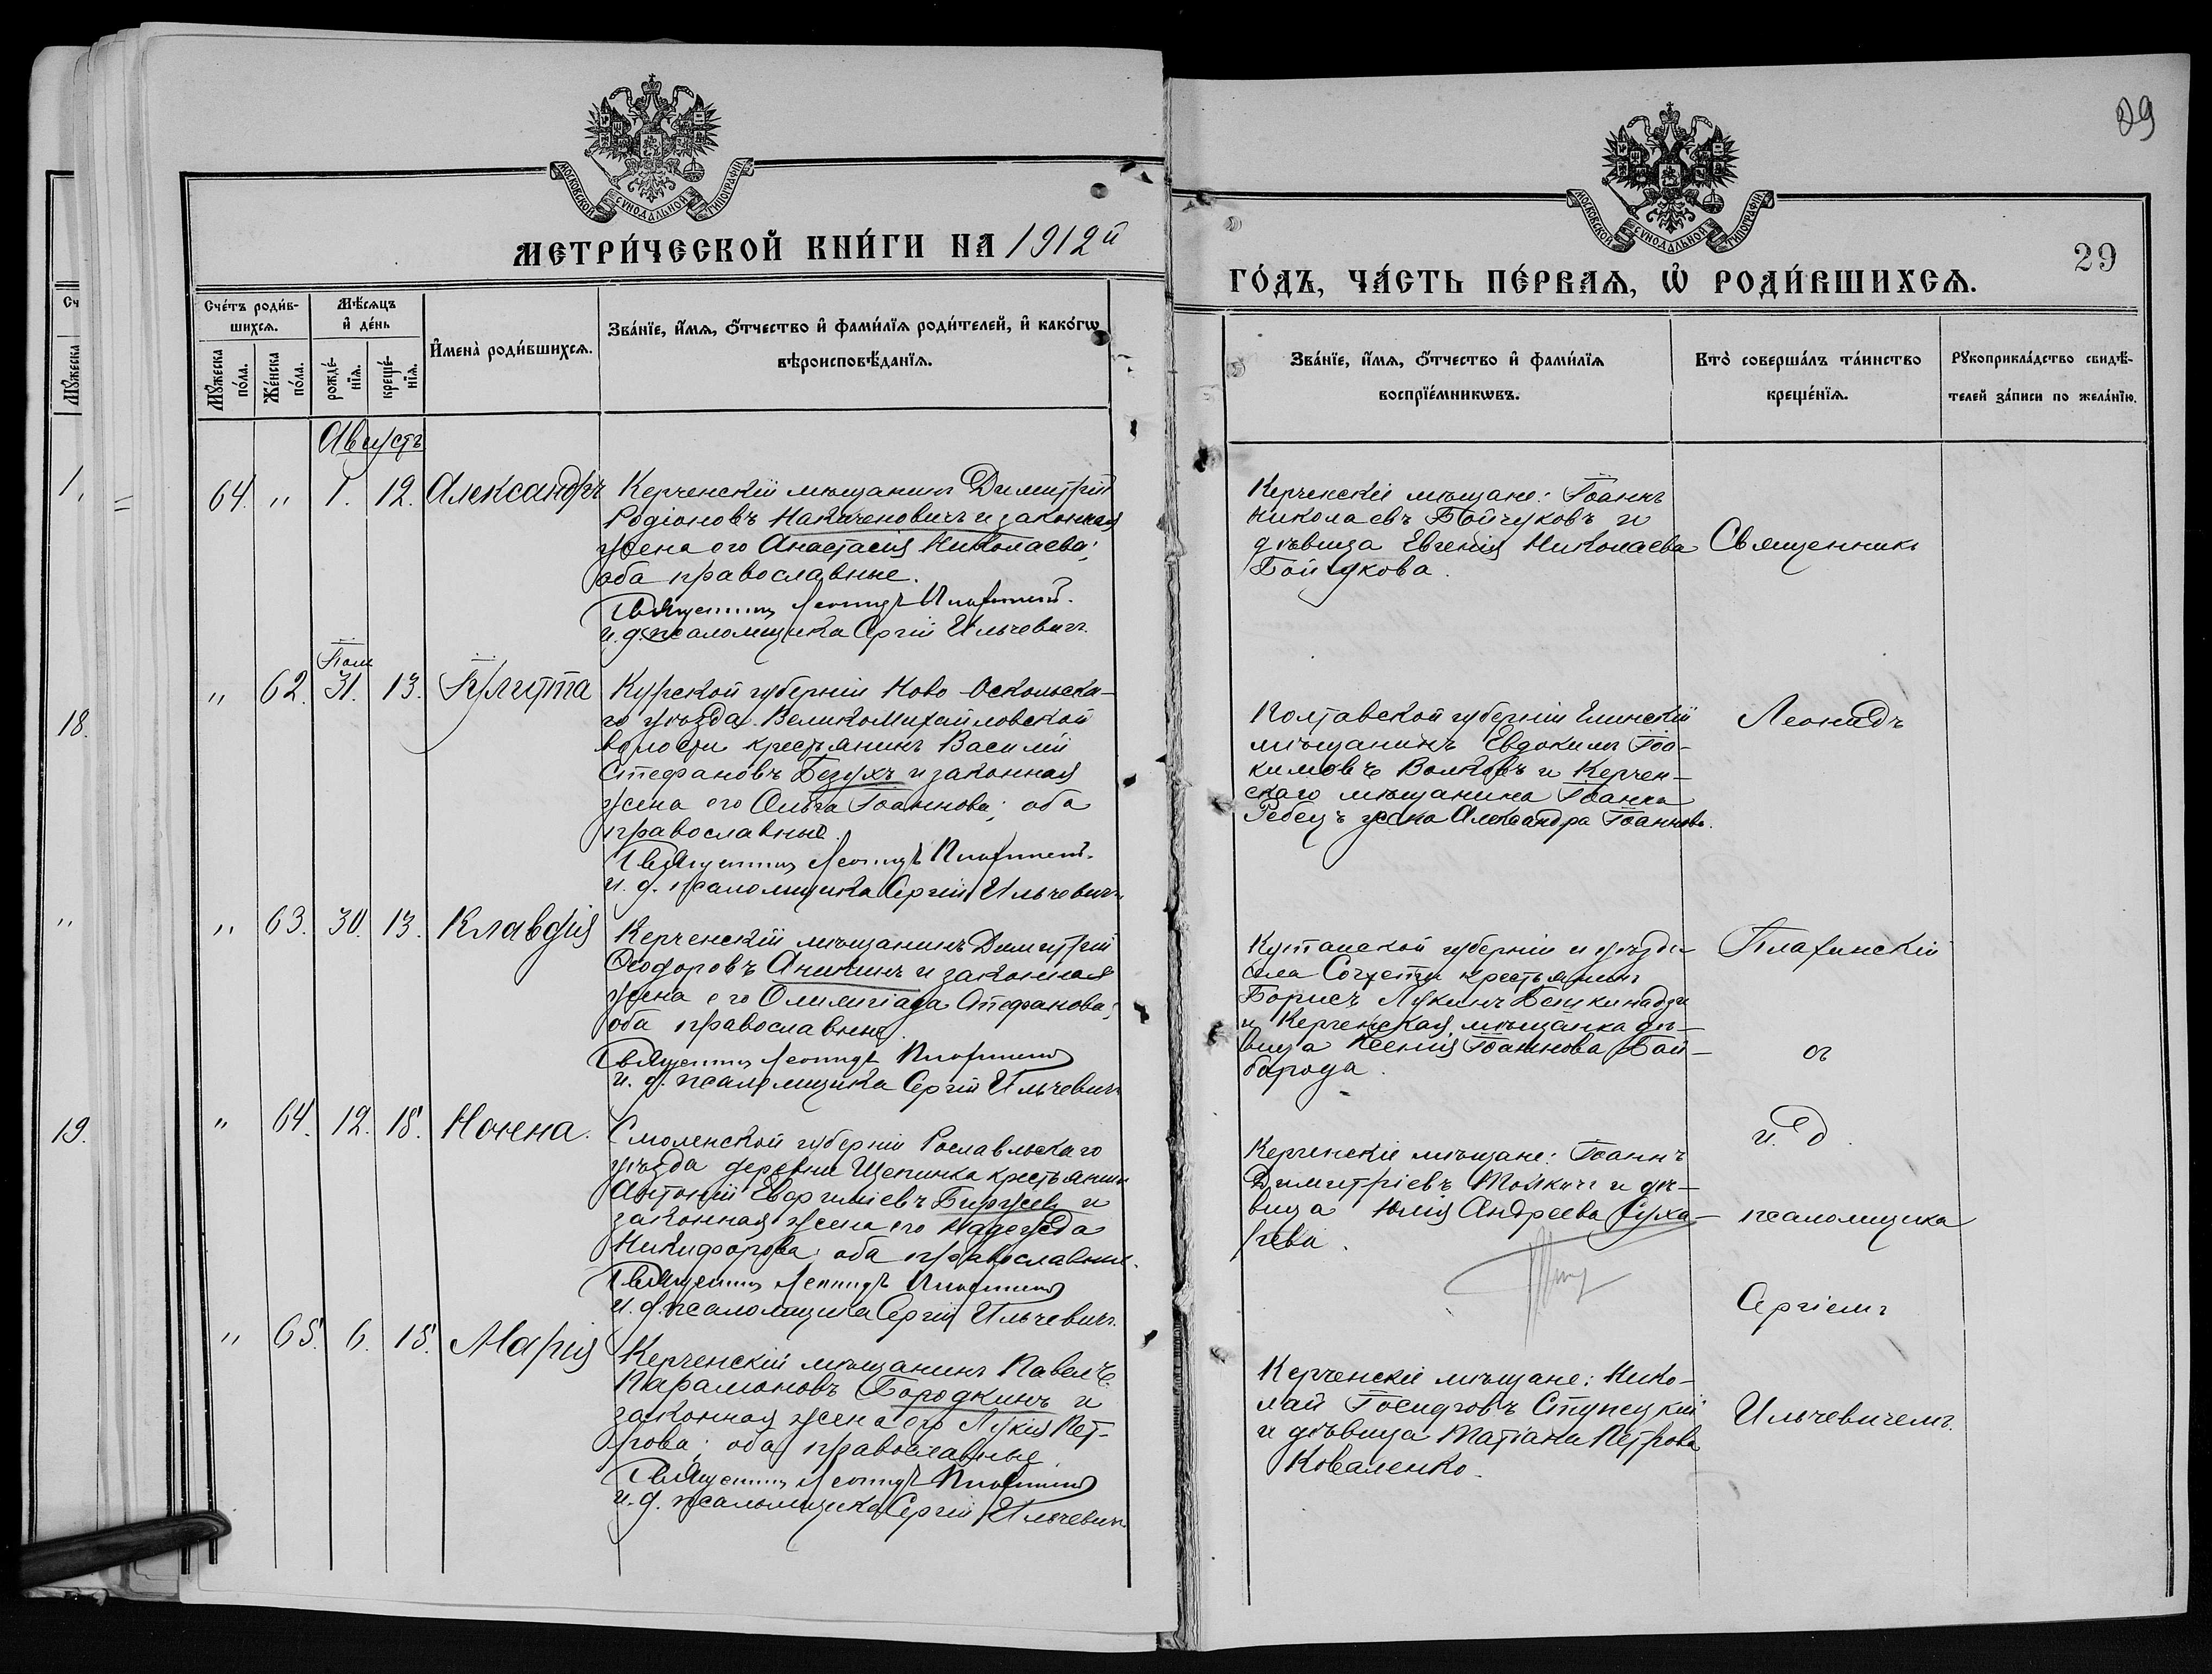 МОСКОВСКОЙ СѴНОДАЛЬНОЙ ТИПОГРАФІИ
МЕТРИ́ЧЕСКОЙ КНИ́ГИ НА 1912й
Сче́тъ роди́в-
шихсѧ.
Мꙋ́жеска
по́ла.
Же́нска
по́ла.
Мѣ́сѧцъ
и҆ де́нь
рожде́-
нїѧ.
креще́-
нїѧ.
И҆мена̀ роди́вшихсѧ.
Зва́нїе, и҆́мѧ, ѻ҆́тчество и҆ фами́лїѧ роди́телей, и҆ како́гѡ
вѣроисповѣ́данїѧ.
Августъ
64. " 1. 12. Александръ
Керченскій мѣщанинъ Димитрій
Родіоновъ и законная
жена его Анастасія Николаева;
оба православные.
Священникъ Леонидъ
и. д. псаломщика Сергій Ильчевичъ.
" 62. 31. 13.
Курской губерніи Ново-Оскольска-
го уѣзда Великомихайловской
волости крестьянинъ Василій
Стефановъ Безухъ и законная
жена его Ольга Іоаннова; оба
православные.
Священникъ Леонидъ
и. д. псаломщика Сергій Ильчевичъ
" 63. 30. 13. Клавдія
Керченскій мѣщанинъ Димитрій
Ѳеодоровъ Аникинъ и законная
жена его Олимпіада Стефанова;
оба православные.
Священникъ Леонидъ
и. д. псаломщика Сергій Ильчевичъ
" 64. 12. 18. Нонна.
Смоленской губерніи Рославльскаго
уѣзда деревни Щепинка крестьянинъ
Антоній и
законная жена его Надежда
Никифорова; оба православные.
Священникъ Леонидъ
и. д. псаломщика Сергій Ильчевичъ.
" 65. 6. 18. Марія
Керченскій мѣщанинъ Павелъ
Парамоновъ Бородкинъ и
законная жена его Лукія Пет-
рова; оба православные.
Священникъ Леонидъ
и. д. псаломщика Сергій Ильчевичъ
29
МОСКОВСКОЙ СѴНОДАЛЬНОЙ ТИПОГРАФІИ
29
ГО́ДЪ, ЧА́СТЬ ПЕ́РВАѦ, Ѡ҆ РОДИ́ВШИХСѦ.
Зва́нїе, и҆́мѧ, ѻ҆́тчество и҆ фами́лїѧ
воспрїе́мникѡвъ.
Кто̀ соверша́лъ та́инство
креще́нїѧ.
Рꙋкоприкла́дство свидѣ́-
телей за́писи по жела́нїю.
Керченскіе мѣщане: Іоаннъ
Николаевъ Бойчуковъ и
дѣвица Евгенія Николаева
Бойчукова.
Полтавской губерніи
мѣщанинъ Евдокимъ Іоа-
кимовъ Волковъ и Керчен-
скаго мѣщанина Іоанна
Ребецъ жена Александра Іоаннова.
Кутаиской губерніи и уѣзда
села крестьянинъ
Борисъ Лукинъ
и Керченская мѣщанка дѣ-
вица Ксенія Іоаннова Бай-
барода.
Керченскіе мѣщане: Іоаннъ
Димитріевъ и дѣ-
вица Юлія Андреева Суха-
рева.
Керченскіе мѣщане: Нико-
лай Ступецкій
и дѣвица Татіана Петрова
Коваленко.
Священникъ
Леонидъ
съ
и. д.
псаломщика
Сергіемъ
Ильчевичемъ.
1.
18.
"
19.